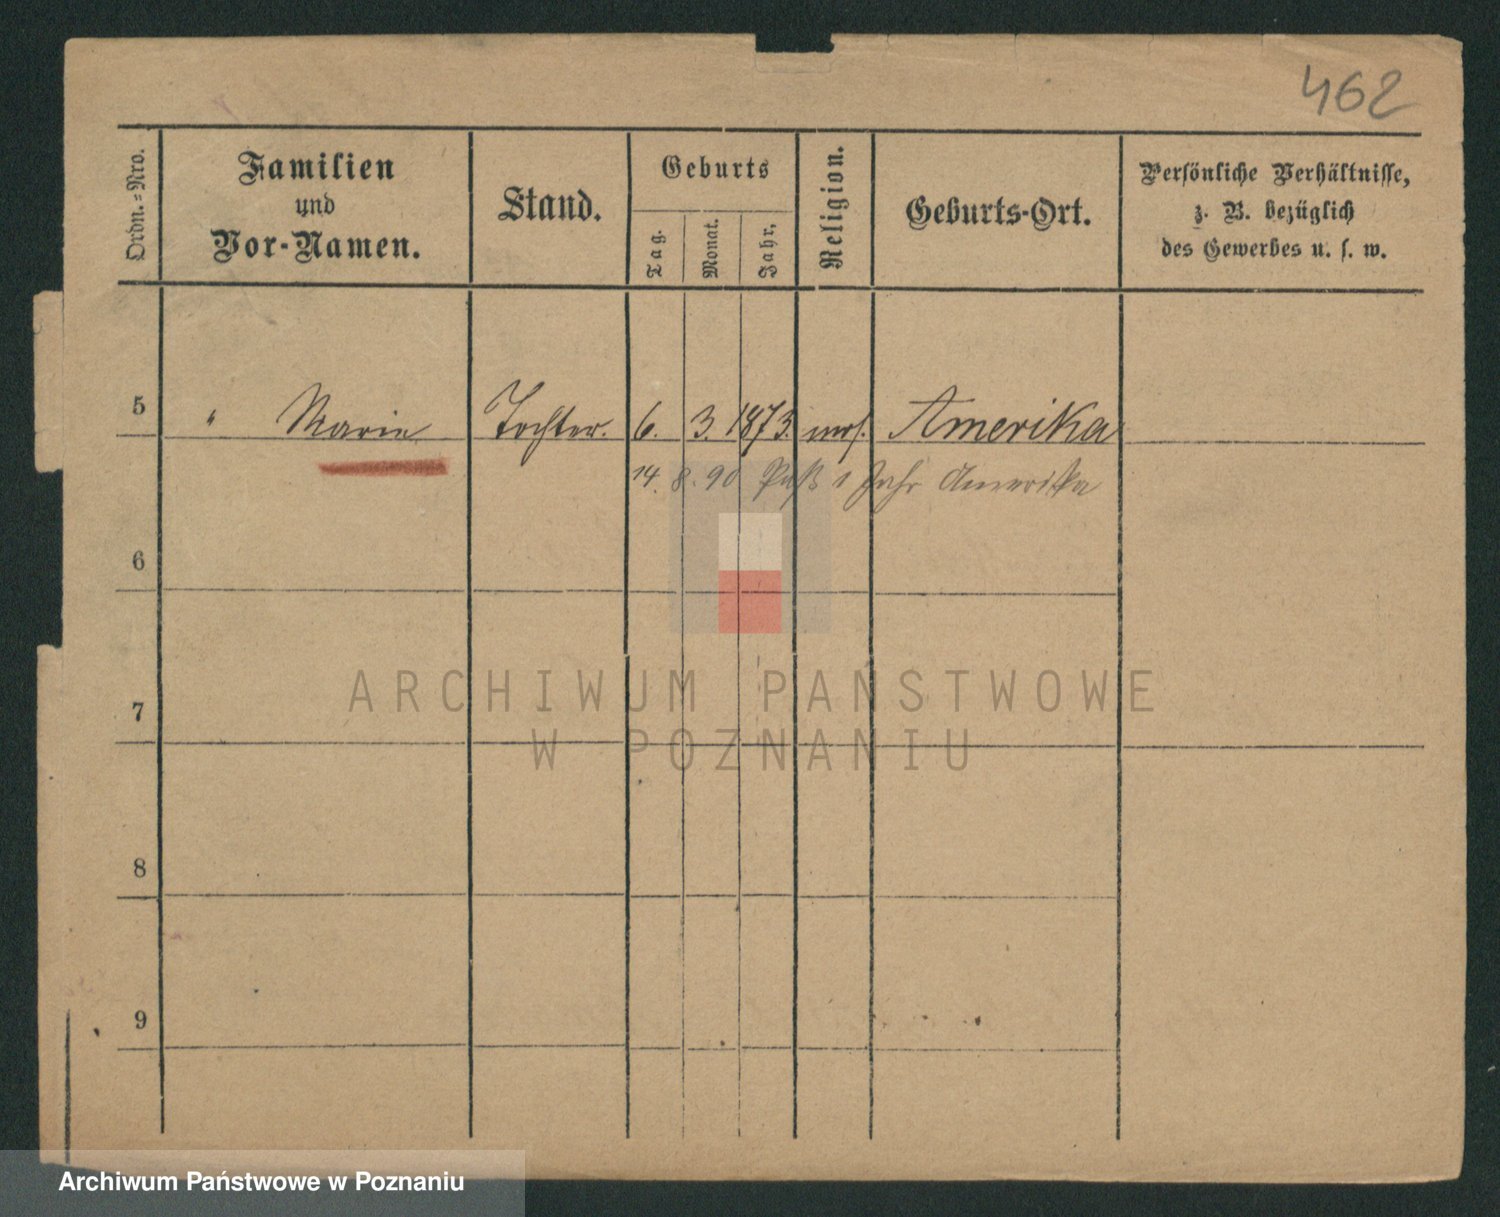 462
Ordn.-Nro.
Familien
und
Vor-Namen.
Stand.
Geburts
Tag.
Monat.
Jahr,
Religion.
Geburts-Ort.
Persönliche Verhältnisse,
z. B. bezüglich
des Gewerbes u. s. w.
5 " Marie Tochter. 6. 3. 1873. mos. Amerika
14. 8. 90 Paß 1 Jahr Amerika
6
7
8
9
ARCHIWUM PAŃSTWOWE
W POZNANIU
Archiwum Państwowe w Poznaniu